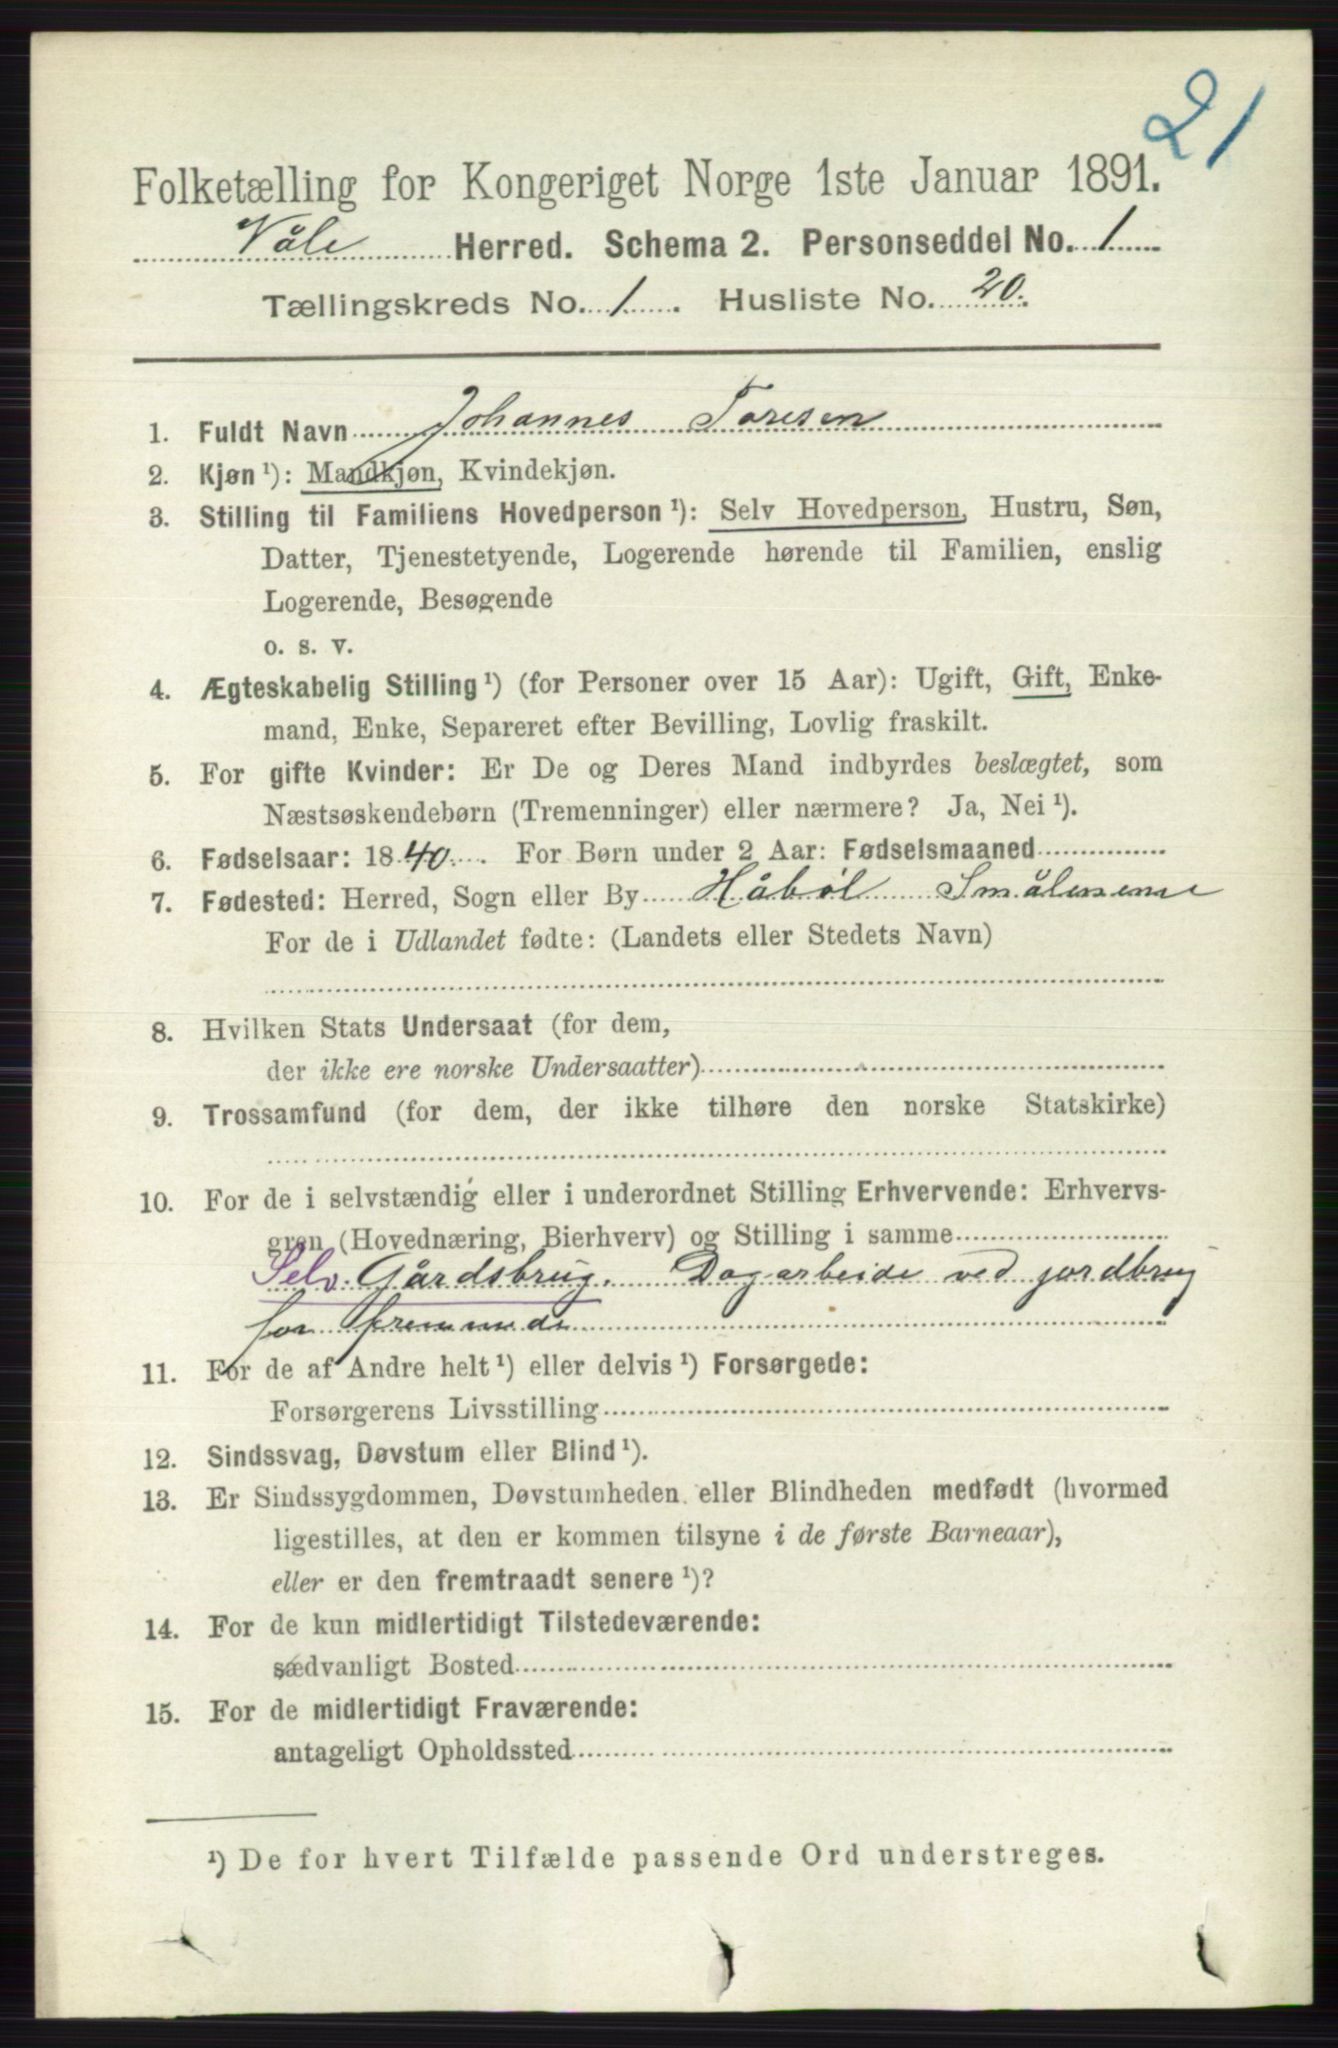 21
Folketælling for Kongeriget Norge 1ste Januar 1891.
Våle Herred. Schema 2. Personseddel No. 1
Tællingskreds No. 1. Husliste No. 20.
1. Fuldt Navn Johannes Toresen
2. Kjøn ¹): Mandkjøn, Kvindekjøn.
3. Stilling til Familiens Hovedperson ¹): Selv Hovedperson, Hustru, Søn,
Datter, Tjenestetyende, Logerende hørende til Familien, enslig
Logerende, Besøgende
o. s. v.
4. Ægteskabelig Stilling ¹) (for Personer over 15 Aar): Ugift, Gift, Enke-
mand, Enke, Separeret efter Bevilling, Lovlig fraskilt.
5. For gifte Kvinder: Er De og Deres Mand indbyrdes beslægtet, som
Næstsøskendebørn (Tremenninger) eller nærmere? Ja, Nei ¹).
6. Fødselsaar: 1840. For Børn under 2 Aar: Fødselsmaaned
7. Fødested: Herred, Sogn eller By Håbøl Smålenene
For de i Udlandet fødte: (Landets eller Stedets Navn)
8. Hvilken Stats Undersaat (for dem,
der ikke ere norske Undersaatter)
9. Trossamfund (for dem, der ikke tilhøre den norske Statskirke)
10. For de i selvstændig eller i underordnet Stilling Erhvervende: Erhvervs-
gren (Hovednæring, Bierhverv) og Stilling i samme
Selv. Gårdsbrug. Dagarbeide ved jordbrug
for fremmede
11. For de af Andre helt ¹) eller delvis ¹) Forsørgede:
Forsørgerens Livsstilling
12. Sindssvag, Døvstum eller Blind ¹).
13. Er Sindssygdommen, Døvstumheden eller Blindheden medfødt (hvormed
ligestilles, at den er kommen tilsyne i de første Barneaar),
eller er den fremtraadt senere ¹)?
14. For de kun midlertidigt Tilstedeværende:
sædvanligt Bosted
15. For de midlertidigt Fraværende:
antageligt Opholdssted
¹) De for hvert Tilfælde passende Ord understreges.